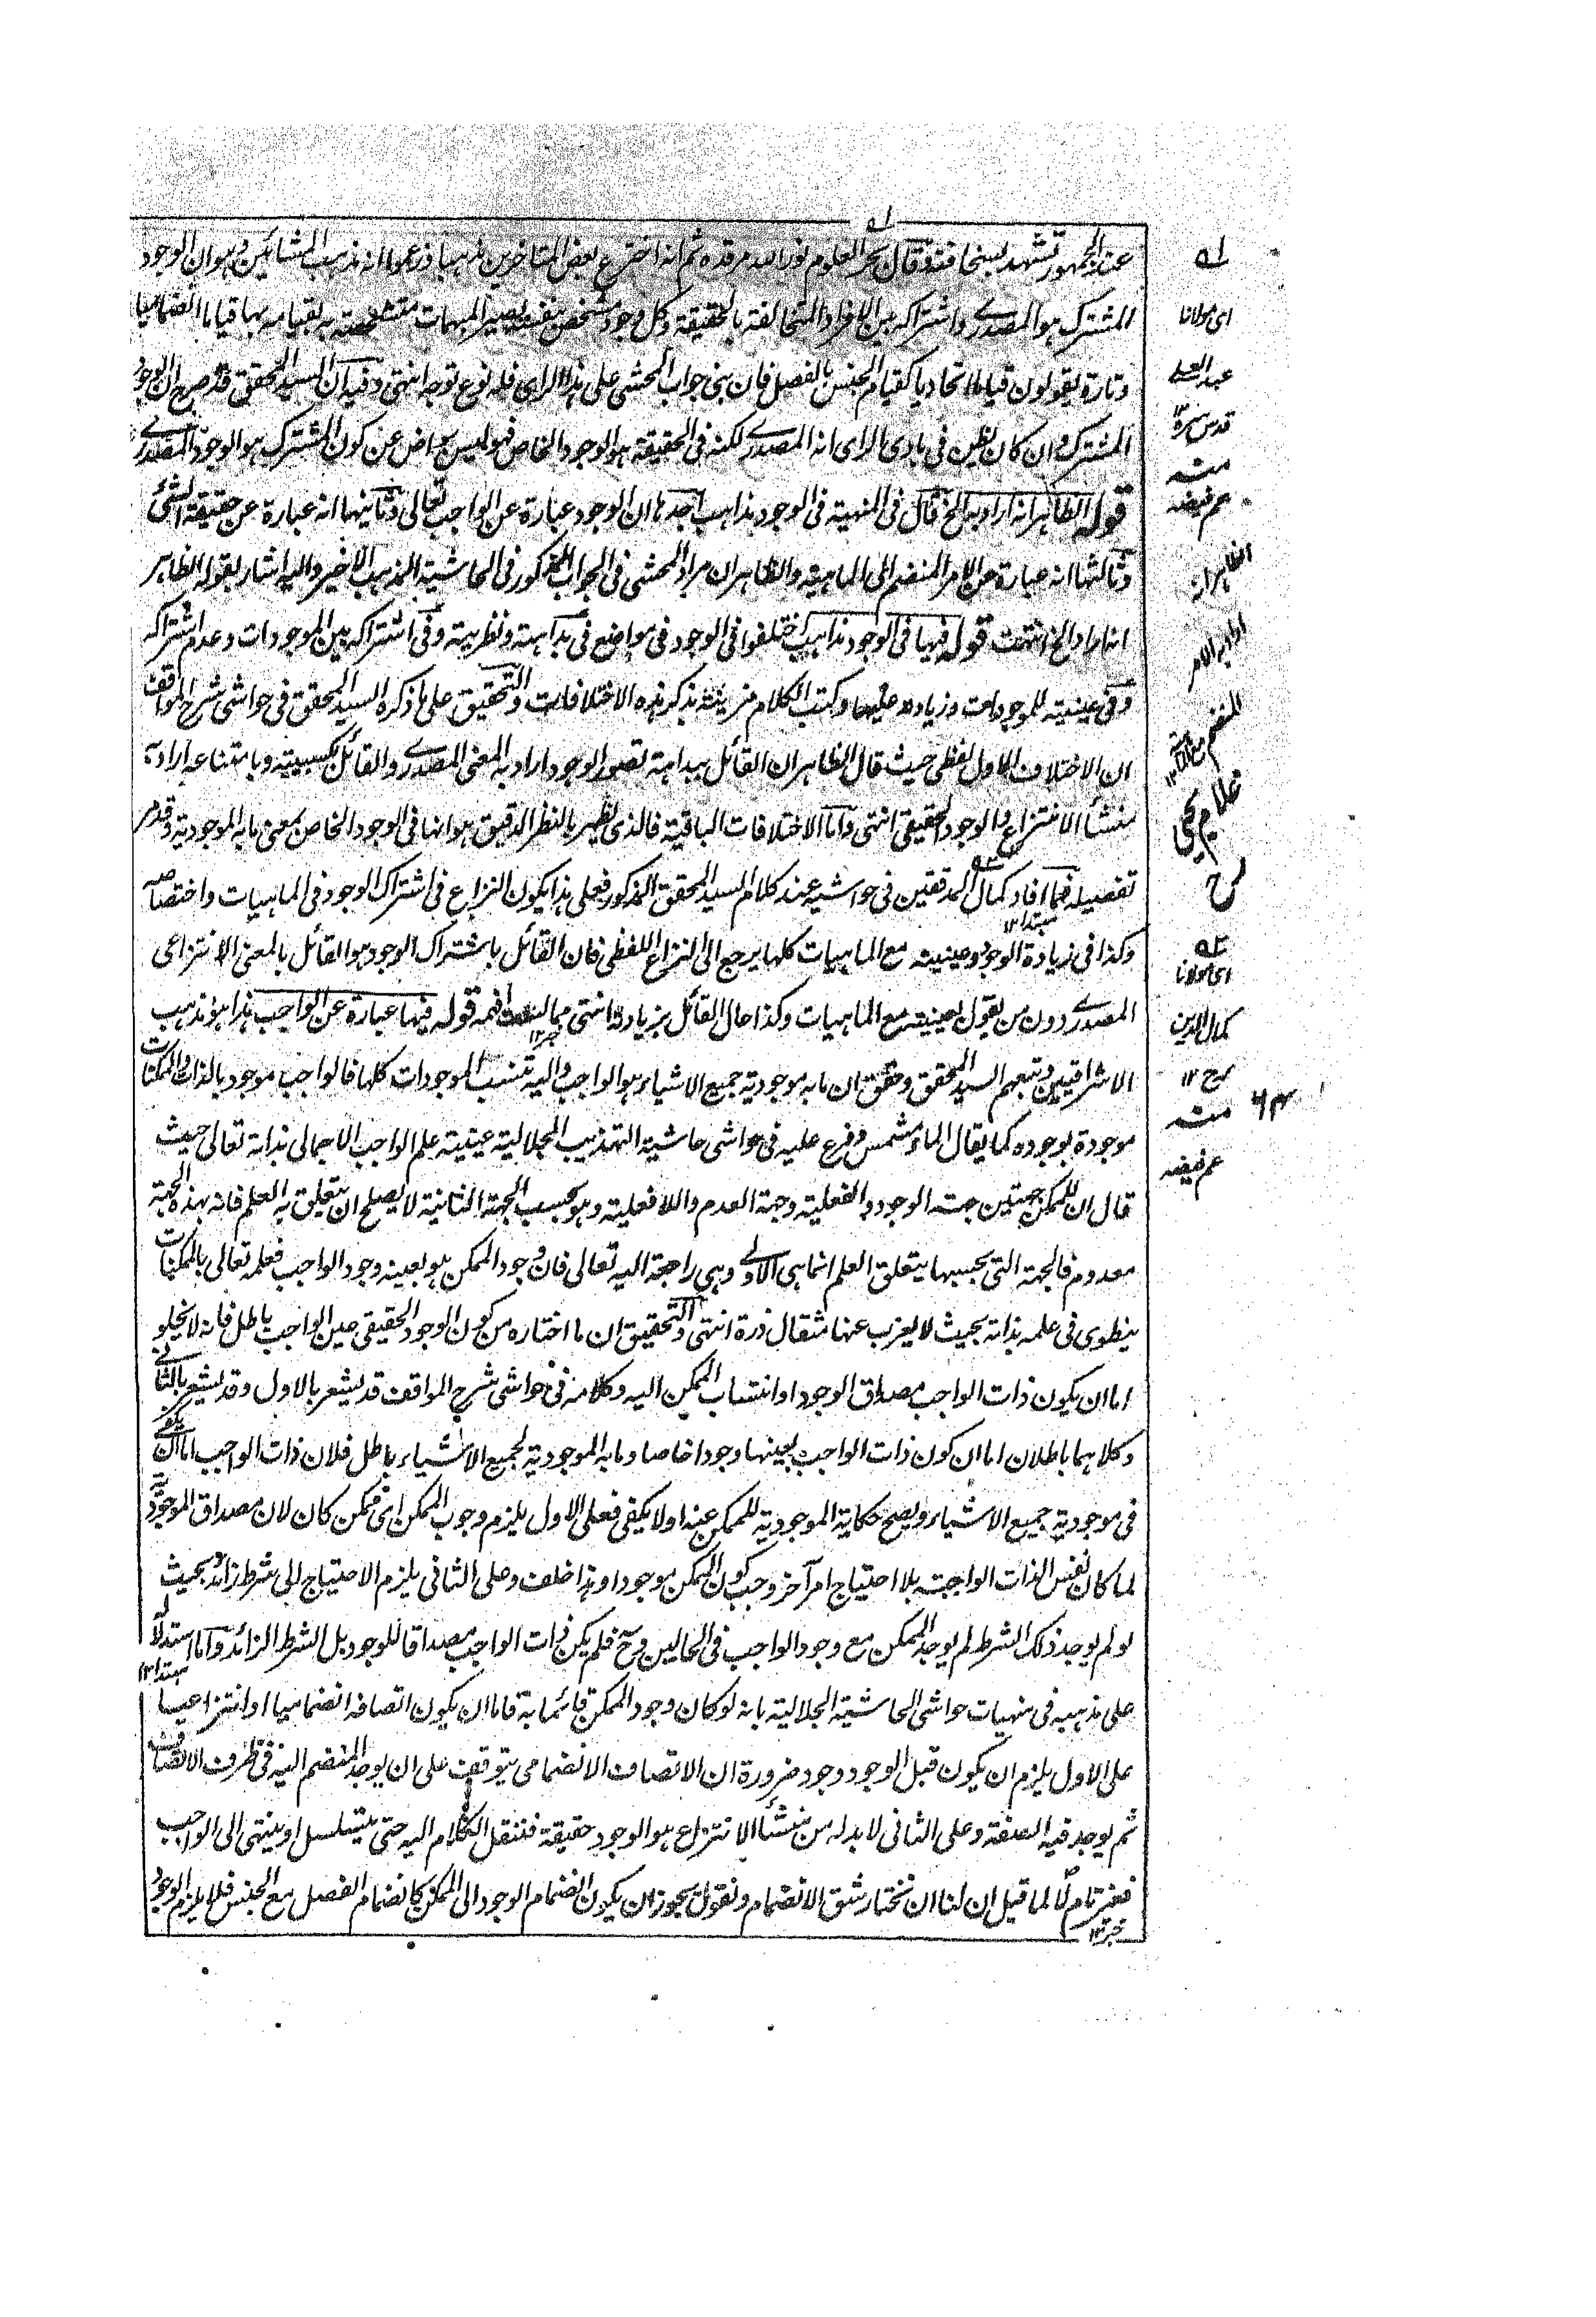 عند الجمهور تشهد بسخافته وقال بحر العلوم نور الله مرقده ثم انه اخترع بعض المتاخرين مذهبا وزعموا انه مذهب المشائين وهو ان الوجود
المشترك هو المصدرى واشتراكه بين الافراد المتخالفة بالحقيقة وكل وجود متشخص بنفسه تصير المهيات متشخصة به لقيامه بها قياما انضماميا
وتارة يقولون قياما اتحاديا كقيام الجنس بالفصل فان بنى جواب المحشى على هذا الراى فله نوع توجه انتهى وفيه ان السيد المحقق قد صرح ان الوجود
المشترك وان كان يظن فى بادى الراى انه المصدرى لكنه فى الحقيقة هو الوجود الخاص فهو ليس براض عن كون المشترك هو الوجود المصدرى
قوله الظاهر انه اراد به الخ قال فى المنهية فى الوجود مذاهب احدها ان الوجود عبارة عن الواجب تعالى وثانيها انه عبارة عن حقيقة الشئ
وثالثها انه عبارة عن الامر المنضم الى الماهية والظاهر ان مراد المحشى فى الجواب المذكور فى الحاشية المذهب الاخير واليه اشار بقوله الظاهر
انه اراد الخ انتهت قوله فيها فى الوجود مذاهب اختلفوا فى الوجود فى مواضع فى بداهته ونظريته وفى اشتراكه بين الموجودات وعدم اشتراكه
وفى عينيته للموجودات وزيادته عليها وكتب الكلام مزينة بذكر هذه الاختلافات والتحقيق على ما ذكره السيد المحقق فى حواشى شرح المواقف
ان الاختلاف الاول لفظى حيث قال الظاهر ان القائل ببداهة تصور الوجود اراد به المعنى المصدرى والقائل بكسبيته وبامتناعه اراد به
منشأ الانتزاع والوجود الحقيقى انتهى واما الاختلافات الباقية فالذى يظهر بالنظر الدقيق هو انها فى الوجود الخاص بمعنى ما به الموجودية وقد مر
تفصيله فما افاد كمال المدققين فى حواشيه عند كلام السيد المحقق المذكور فعلى هذا يكون النزاع فى اشتراك الوجود فى الماهيات واختصاصه
وكذا فى زيادة الوجود وعينيته مع الماهيات كلها يرجع الى النزاع اللفظى فان القائل باشتراك الوجود هو القائل بالمعنى الانتزاعى
المصدرى دون من يقول بعينيته مع الماهيات وكذا حال القائل بزيادته انتهى مما لست افهمه قوله فيها عبارة عن الواجب هذا هو مذهب
الاشراقيين وتبعهم السيد المحقق وحقق ان ما به موجودية جميع الاشياء هو الواجب واليه تنسب الموجودات كلها فالواجب موجود بالذات والممكنات
موجودة بوجوده كما يقال الماء مشمس وفرع عليه فى حواشى حاشية التهذيب الجلالية عينية علم الواجب الاجمالى بذاته تعالى حيث
قال ان للممكن جهتين جهة الوجود والفعلية وجهة العدم واللا فعلية وهو بحسب الجهة الثانية لا يصلح ان يتعلق به العلم فانه بهذه الجهة
معدوم فالجهة التى بحسبها يتعلق العلم انما هى الاولى وهى راجعة اليه تعالى فان وجود الممكن هو بعينه وجود الواجب فعلمه تعالى بالممكنات
ينطوى فى علمه بذاته بحيث لا يعزب عنها مثقال ذرة انتهى والتحقيق ان ما اختاره من كون الوجود الحقيقى عين الواجب باطل فانه لا يخلو
اما ان يكون ذات الواجب مصداق الوجود او انتساب الممكن اليه وكلامه فى حواشى شرح المواقف قد يشعر بالاول وقد يشعر بالثانى
وكلاهما باطلان اما ان كون ذات الواجب بعينها وجودا خاصا وما به الموجودية لجميع الاشياء باطل فلان ذات الواجب اما ان يكفى
فى موجودية جميع الاشياء ويصح حكاية الموجودية للممكن عنه او لا يكفى فعلى الاول يلزم وجوب الممكن اى ممكن كان لان مصداق الموجودية
لما كان نفس الذات الواجبة بلا احتياج امر آخر وجب كون الممكن موجودا وهذا خلف وعلى الثانى يلزم الاحتياج الى شرط زائد بحيث
لو لم يوجد ذلك الشرط لم يوجد الممكن مع وجود الواجب فى الحالين وح فلم يكن ذات الواجب مصداقا للوجود بل الشرط الزائد واما استدلاله
على مذهبه فى منهيات حواشى الحاشية الجلالية بانه لو كان وجود الممكن قائما به فاما ان يكون اتصافه انضماميا او انتزاعيا
على الاول يلزم ان يكون قبل الوجود وجود ضرورة ان الاتصاف الانضمامى يتوقف على ان يوجد المنضم اليه فى ظرف الاتصاف
ثم يوجد فيه الصفة وعلى الثانى لا بد له من منشأ الانتزاع هو الوجود حقيقة فننقل الكلام اليه حتى يتسلسل او ينتهى الى الواجب
فغير تام لا لما قيل ان لنا ان نختار شق الانضمام ونقول يجوز ان يكون انضمام الوجود الى الممكن كانضمام الفصل مع الجنس فلا يلزم الوجود
خبر ١٢
اى مولانا
عبد العلى
قدس سره ١٢
منه
عم فيضه
الظاهر انه
اراد به الامر
المنضم
غلام يحيى
رح
اى مولانا
كمال الدين
رح ١٢
منه
عم فيضه